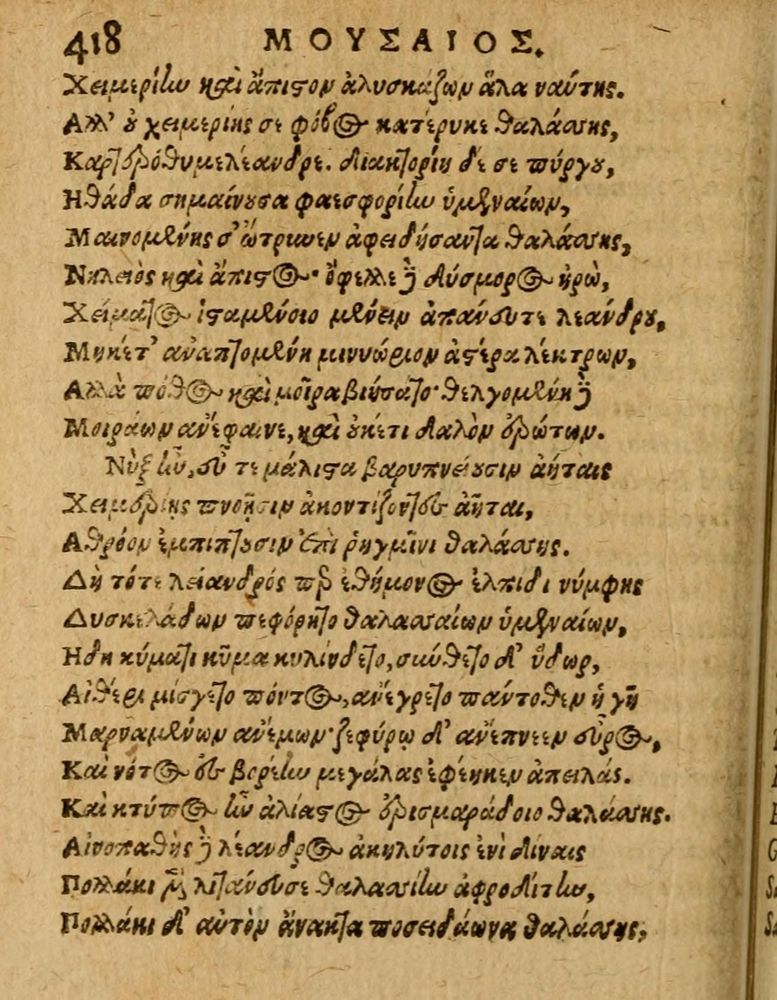 418 ΜΟΥΣΑΙΟΣ.
Χειμερίην καὶ ἄπιστον ἀλυσκάζων ἅλα ναύτης.
Αλλ' οὐ χειμερίης σε φόβος κατέρυκε θαλάσσης,
Καρτερόθυμε λέανδρε. διακτορίη δέ σε πύργου,
Ηθάδα σημαίνουσα φαεσφορίην ὑμεναίων,
Μαινομένης σ' ὤτρυνεν ἀφειδήσαντα θαλάσσης,
Νηλειὸς καὶ ἄπιστος· ὄφελλε δὲ δύσμορος ἡρὼ,
Χείματος ἱσταμένοιο μένειν ἀπάνευθε λεάνδρου,
Μηκέτ' ἀναπτομένη μινυώριον ἀστέρα λέκτρων,
Αλλὰ πόθος καὶ μοῖρα βιήσατο· θελγομένη δὲ
Μοιράων ἀνέφαινε, καὶ οὐκέτι δαλὸν ἐρώτων.
Νὺξ ἦν, εὖτε μάλιστα βαρυπνείουσιν ἀήταις
Χειμερίης πνοῇσιν ἀκοντίζοντες ἀῆται,
Αθρόον ἐμπίπτουσιν ἐπὶ ῥηγμῖνι θαλάσσης.
Δὴ τότε λείανδρός περ ἐθήμονος ἐλπίδι νύμφης
Δυσκελάδων πεφόρητο θαλασσαίων ὑμεναίων,
Ηδη κύματι κῦμα κυλίνδετο, σύνθετο δ' ὕδωρ,
Αἰθέρι μίσγετο πόντος, ἀνέγρετο πάντοθεν ἡ γῆ
Μαρναμένων ἀνέμων· ζεφύρῳ δ' ἀνέπνεεν εὖρος,
Καὶ νότος ἐς βορέην μεγάλας ἐφέηκεν ἀπειλάς.
Καὶ κτύπος ἦν ἀλίαστος ἐρισμαράδοιο θαλάσσης.
Αἰνοπαθὴς δὲ λέανδρος ἀκηλύτοις ἐνὶ δίναις
Πολλάκι μὲν λιτάνευσε θαλασσίην ἀφροδίτην,
Πολλάκι δ' αὐτὸν ἄνακτα ποσειδάωνα θαλάσσης,